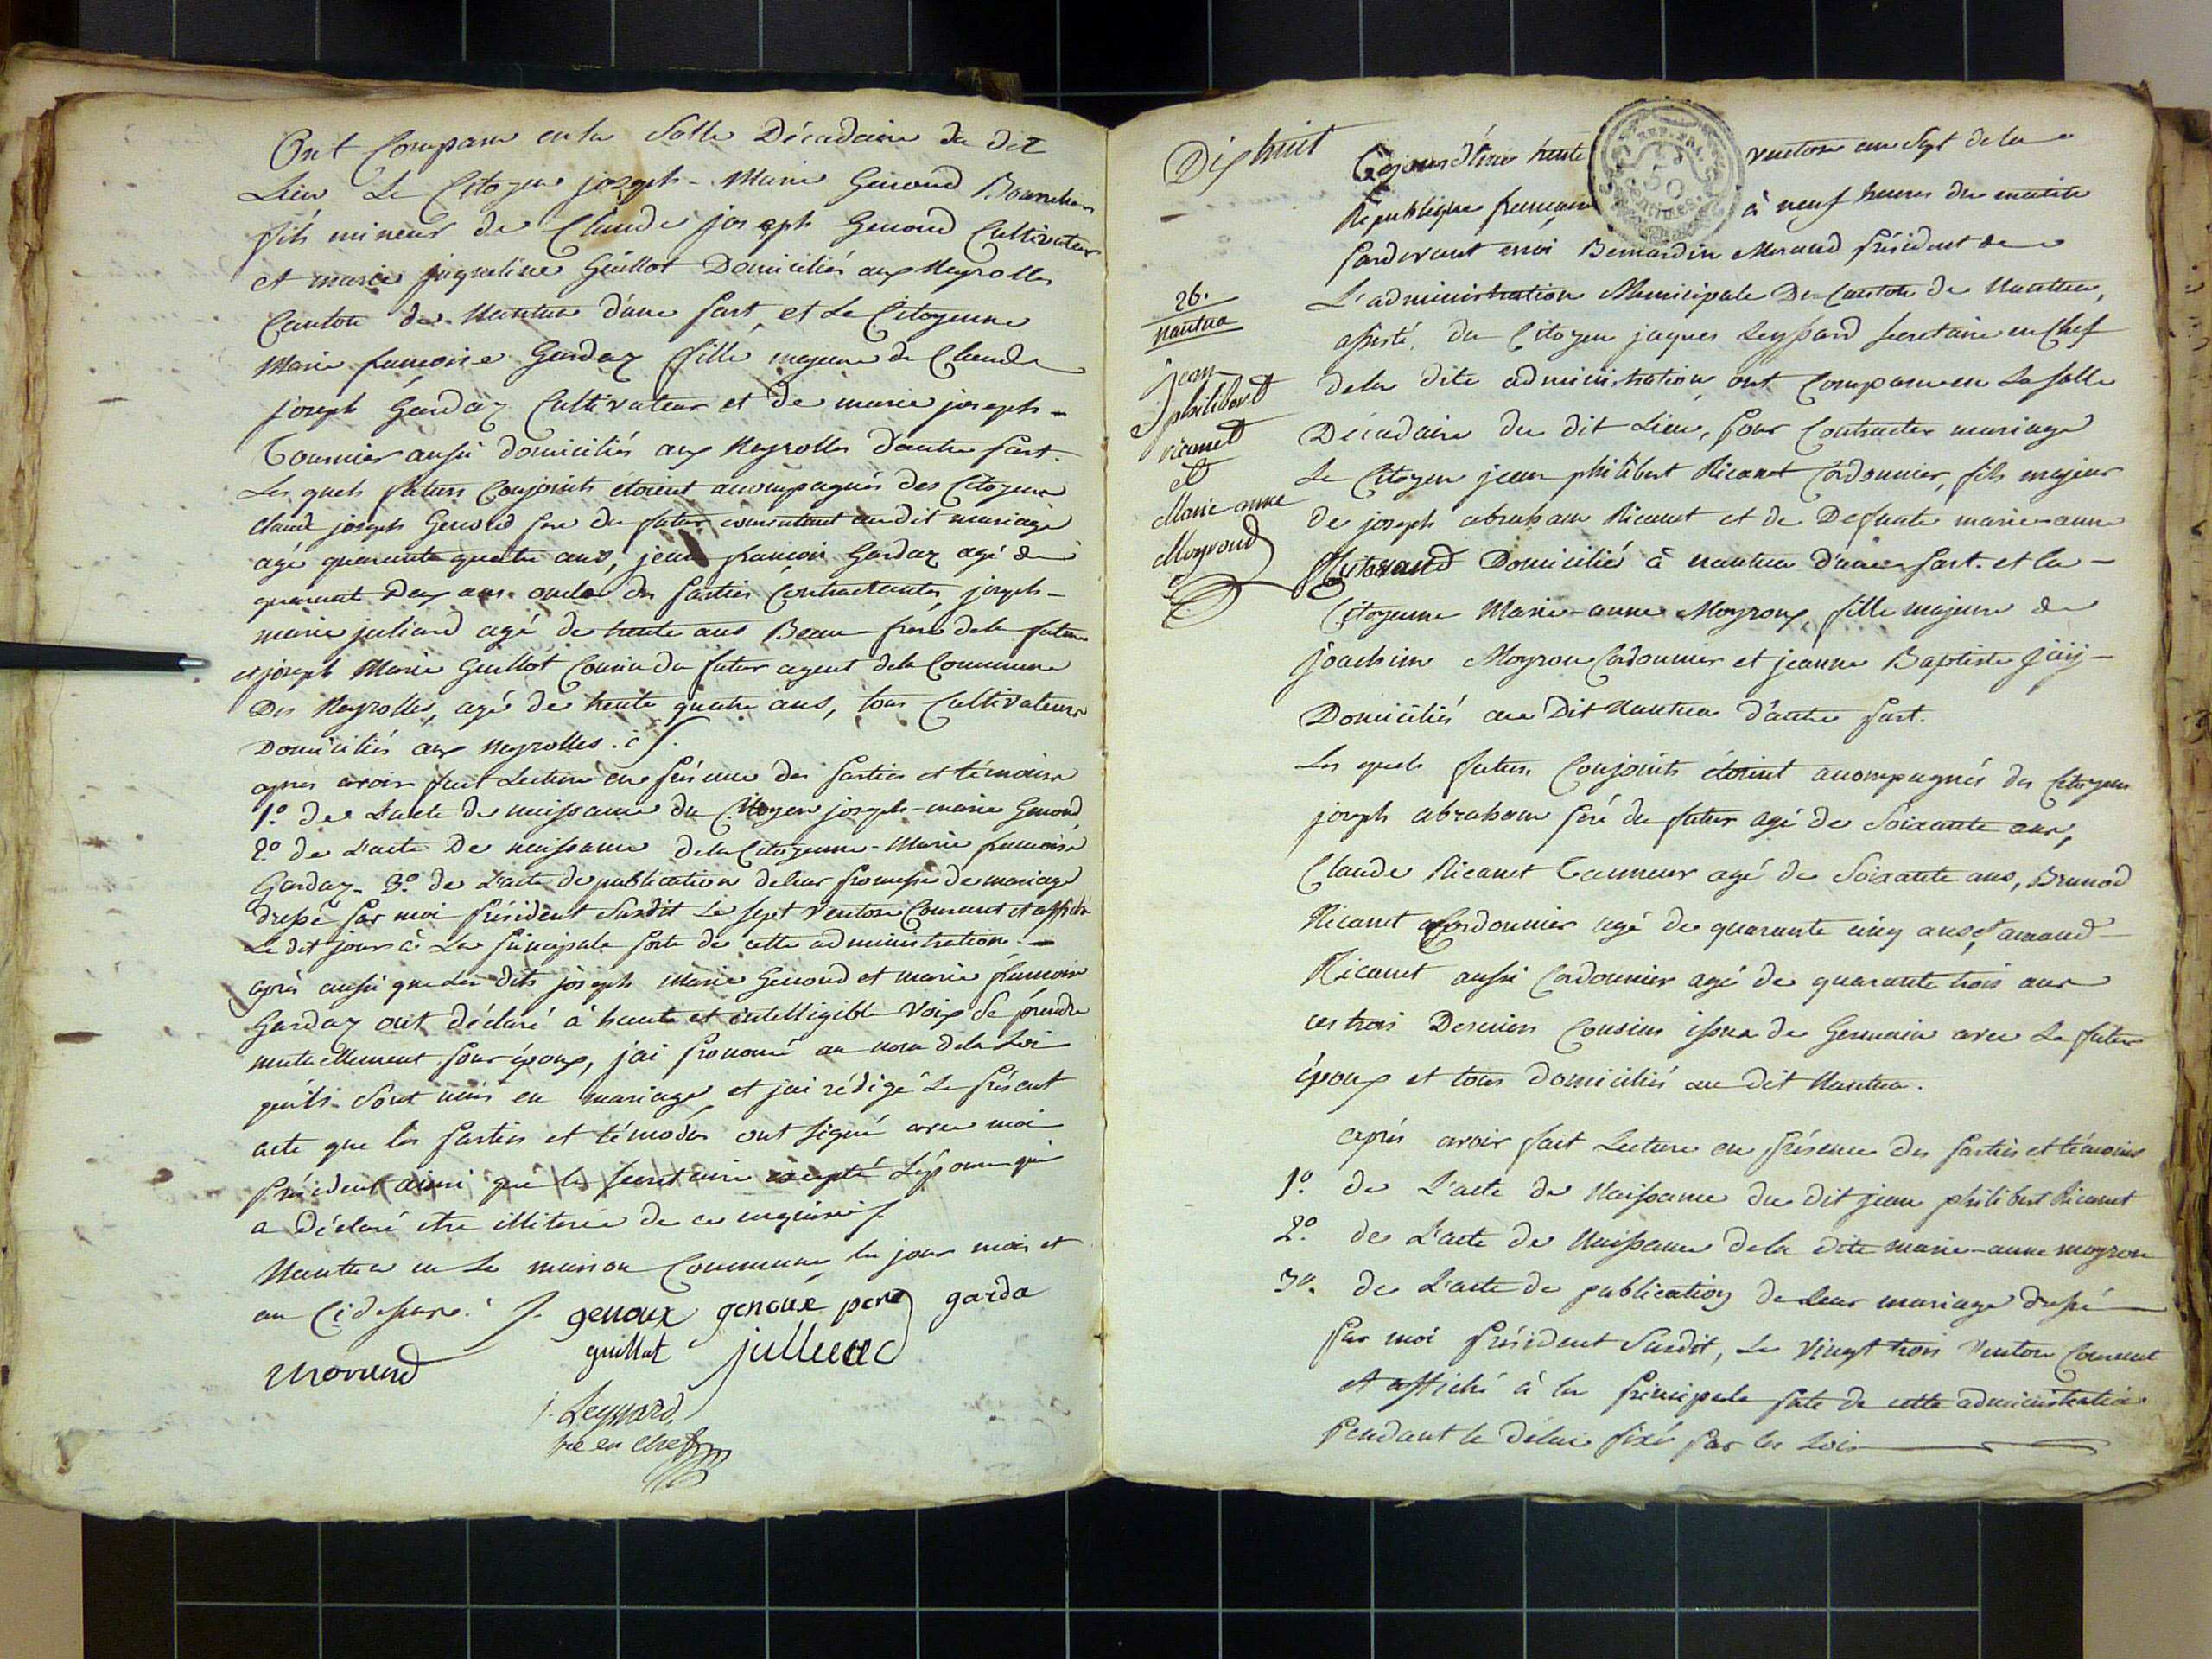 Ont Comparu en la Salle Décadaire du dit
Lieu Le Citoyen joseph-Marie Genoud
fils mineur de Claude joseph Genoud Cultivateur
et marie jaqueline Guillot Domiciliés aux Neyrolles
Canton de Nantua d'une part, et La Citoyenne
Marie francoise Gardaz fille majeure de Claude
joseph Gardaz Cultivateur et de marie joseph-
Tournier aussi domiciliés aux Neyrolles d'autre part.
Les quels futurs Conjoints étoient accompagnés des Citoyens
Claude joseph Genoud pere du futur consentant audit mariage
agé quarante quatre ans, jean francois Gardaz agé de
quarante Deux ans oncle des parties Contractantes, joseph-
marie juliard agé de trente ans Beau-frere de la future
et joseph Marie Guillot Cousin du futur agent dela Commune
Des Neyrolles, agé de trente quatre ans, tous Cultivateurs
Domiciliés aux neyrolles.
apres avoir fait Lecture en présence des parties et témoins
1.º de L'acte de naissance du Citoyen joseph-marie Genoud
2.º de L'acte De naissance dela Citoyenne-Marie francoise
Gardaz. 3.º de L'acte de publication deleur promesse de mariage
dressé par moi président Susdit Le sept Ventose Courant et affiché
Le dit jour à La principale porte de cette administration.
après aussi que Les dits joseph Marie Genoud et marie francoise
Gardaz ont déclaré à haute et intelligible voix Se prendre
mutuellement pour époux, j'ai prononcé au nom dela Loi
qu'ils Sont unis en mariage et j'ai rédigé Le présent
acte que les parties et témoins ont Signé avec moi
Président ainsi que le secretaire excepté L'épouse qui
a Déclaré etre illiterée de ce enquise
Nantua en La maison Commune les jour mois et
an Cidessus.
genoux genoux pere garda
guillot julliard
Morand
j. Leyssard,
re en chef
Dix huit
Cejourd'hui trente ventose an Sept de la
REP. FRA.
50
Centimes
République francaise à neuf heures du matin
Pardevant moi Bernardin Morand Président de
L'administration Municipale Du Canton de Nantua,
assisté du Citoyen jaques Leyssard secretaire en Chef
dela dite administration, ont Comparu en La Salle
Décadaire du dit Lieu, pour Contracter mariage
Le Citoyen jean philibert Ricanet Cordonnier, fils majeur
de joseph abraham Ricanet et de Defunte marie-anne
Domicilié à nantua d'une part. et la-
Citoyenne Marie-anne Moyroux, fille majeure de
joachim Moyrou Cordonnier et jeanne Baptiste
Domiciliés au Dit Nantua d'autre part.
Les quels futurs Conjoints étoient accompagnés des Citoyens
joseph abraham péré du futur agé de Soixante ans,
Claude Ricanet Tanneur agé de Soixante ans, Brunod
Ricanet Cordonnier agé de quarante cinq ans, et amand-
Ricanet aussi Cordonnier agé de quarante trois ans
ces trois Derniers Cousins issus de Germain avec Le futur
époux et tous domiciliés au dit Nantua.
après avoir fait Lecture en présence des parties et témoins
1.º de L'acte de Naissance du dit jean philibert Ricanet
2.º de L'acte de Naissance dela dite marie-anne moyrou
3.º de L'acte de publication de Leur mariage dressé
par moi président Susdit, Le vingt trois Ventose Courant
et affiché à la principale porte de cette administration
Pendant le délai fixé par les Lois
26.
nantua
jean
philibert
ricanet
et
Marie-anne
Moyroud